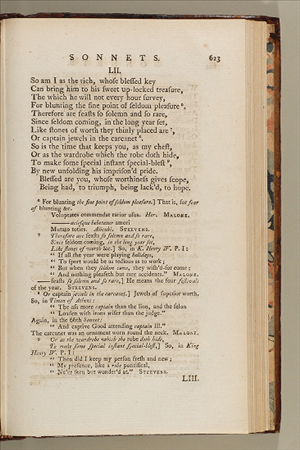 SONNETS. 623
LII.
So am I as the rich, whose blessed key
Can bring him to his sweet up-locked treasure,
The which he will not every hour survey,
For blunting the fine point of seldom pleasure⁶.
Therefore are feasts so solemn and so rare,
Since seldom coming, in the long year set,
Like stones of worth they thinly placed are⁷,
Or captain jewels in the carcanet⁸.
So is the time that keeps you, as my chest,
Or as the wardrobe which the robe doth hide,
To make some special instant special-blest⁹,
By new unfolding his imprison'd pride.
Blessed are you, whose worthiness gives scope,
Being had, to triumph, being lack'd, to hope.
⁶ For blunting the fine point of seldom pleasure.] That is, for fear
of blunting &c.
Voluptates commendat rarior usus. Hor. MALONE.
Mutuo toties. STEEVENS.
⁷ Therefore are feasts so solemn and so rare,
Since seldom coming, in the long year set,
Like stones of worth &c.] So, in K. Henry IV. P. I:
" If all the year were playing holidays,
" To sport would be as tedious as to work;
" But when they seldom come, they wish'd-for come;
" And nothing pleaseth but rare accidents." MALONE.
— feasts so solemn and so rare,] He means the four festivals
of the year. STEEVENS.
⁸ Or captain jewels in the carcanet.] Jewels of superior worth.
So, in Timon of Athens:
" The ass more captain than the lion, and the felon
" Loaden with irons wiser than the judge."
Again, in the 66th Sonnet:
" And captive Good attending captain ill."
The carcanet was an ornament worn round the neck. MALONE.
⁹ Or as the wardrobe which the robe doth hide,
To make some special instant special-blest,] So, in King
Henry IV. P. I:
" Then did I keep my person fresh and new;
" My presence, like a robe pontifical,
" Ne'er seen but wonder'd at." STEEVENS.
LIII.